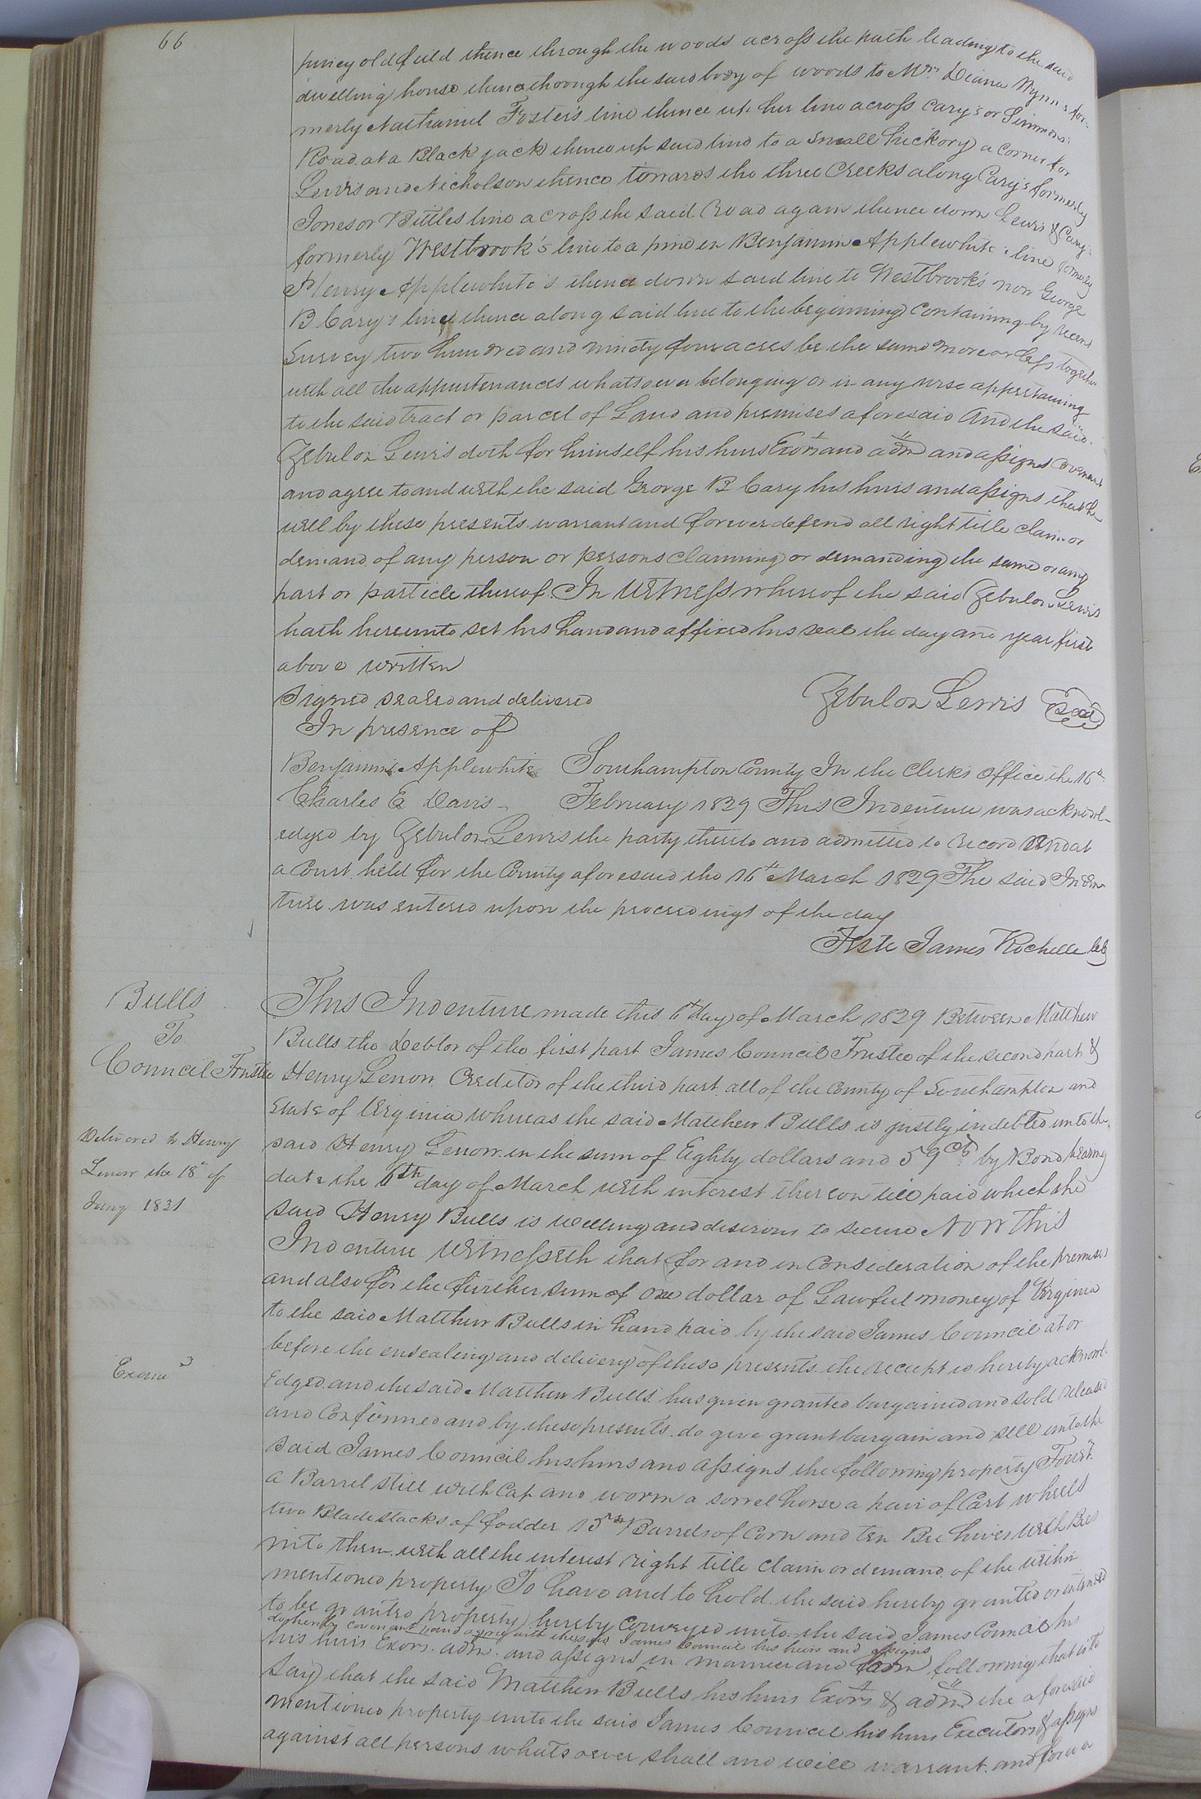 66
piney oldfield thence through the woods across the path leading to the said
dwelling house thence through the said body of woods to Mrs Diana Wynns for-
merly Nathaniel Foster's line thence up her line across Cary's or Simmons'
Road at a Black jack thence up said line to a small hickory a corner for
Lewis and Nicholson thence towards the three Creeks along Cary's formerly
Jones or Bittles line across the said Road again thence down Lewis & Cary's
formerly Westbrook's line to a pine in Benjamin Applewhite's line formerly
Henry Applewhite's thence down said line to Westbrook's now George
B Cary's line thence along said line to the beginning Containing by recent
Survey two hundred and ninety four acres be the same more or less together
with all the appurtenances whatsoever belonging or in any wise appertaining
to the said tract or parcel of Land and premises aforesaid And the said
Zebulon Lewis doth for himself his heirs Exors and adm and assigns covenant
and agree to and with the said George B Cary his heirs and assigns that he
will by these presents warrant and forever defend all right title claim or
demand of any person or persons claiming or demanding the same or any
part or particle thereof In Witness whereof the said Zebulon Lewis
hath hereunto set his hand and affixed his seal the day and year first
above written
Signed sealed and delivered
Zebulon Lewis Seal
In presence of
Benjamin Applewhite Southampton County In the Clerks office the 16th
Charles E Davis February 1829 This Indenture was acknowl-
edged by Zebulon Lewis the party thereto and admitted to record And at
a Court held for the County aforesaid the 16th March 1829 The said Inden-
ture was entered upon the proceedings of the day
Teste James Rochelle
Bulls
To
Council Trustee
Delivered to Henry
Lenow the 18th of
1831
This Indenture made this 6th day of March 1829 Between Matthew
Bulls the Debtor of the first part James Council Trustee of the second part &
Henry Lenow Creditor of the third part all of the County of Southampton and
State of Virginia whereas the said Matthew Bulls is justly indebted unto the
said Henry Lenow in the sum of Eighty dollars and 59 Cts by Bond bearing
date the 6th day of March with interest thereon till paid which the
said Henry Bulls is willing and desirous to secure Now This
Indenture Witnesseth that for and in Consideration of the premises
and also for the further sum of one dollar of Lawful money of Virginia
to the said Matthew Bulls in hand paid by the said James Council at or
before the ensealing and delivery of these presents the receipt is hereby acknowl-
Edged and the said Matthew Bulls has given granted bargained and sold released
and Confirmed and by these presents do give grant bargain and sell unto the
said James Council his heirs and assigns the following property
a Barrel Still with Cap and worm a sorrel horse a pair of Cart wheels
two Blade stacks of fodder 15 Barrels of Corn and ten Bee hives with Bees
into them with all the interest right title claim or demand of the within
mentioned property To have and to hold the said hereby granted or intended
to be granted property hereby Conveyed unto the said James Council he
doth hereby covenant and agree with the said James Council his heirs and assigns
his heirs Exors adm and assigns in manner and form following that is to
say that the said Matthew Bulls his heirs Exors & adm the aforesaid
mentioned property unto the said James Council his heirs Executors & assigns
against all persons whatsoever shall and will warrant and forever